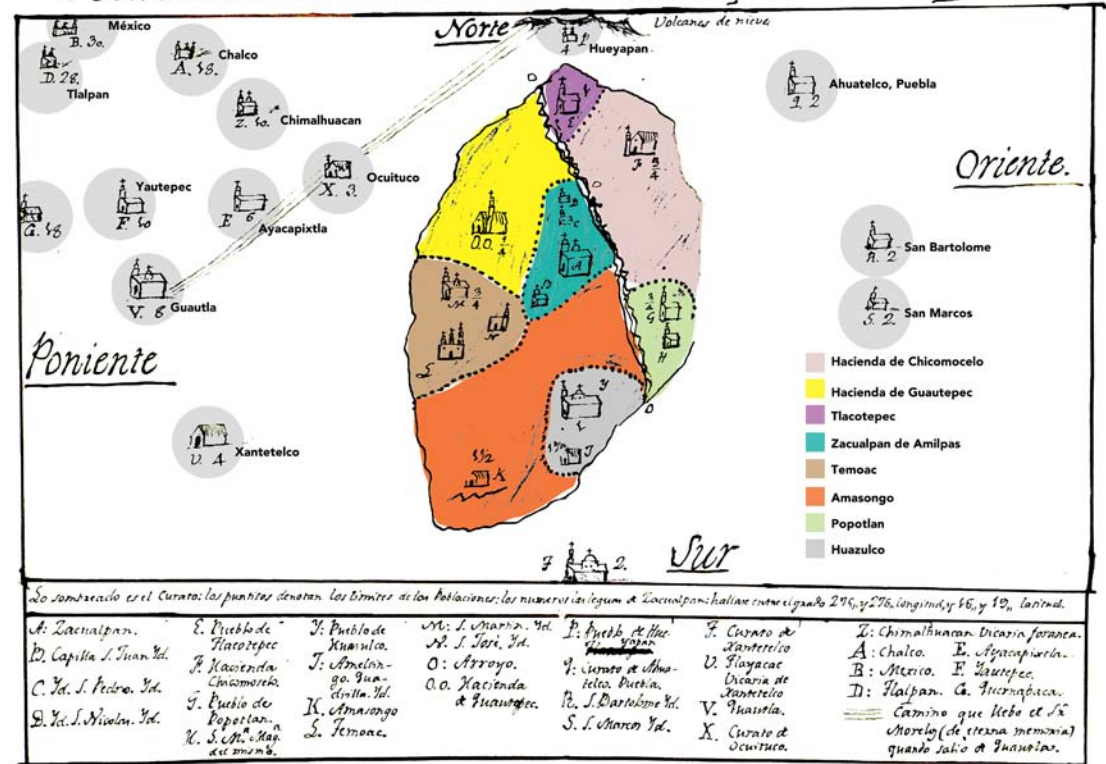 Norte
Volcanes de nieve
México
B. 30.
D. 28.
Tlalpan
A. 18.
Chalco
Z. 10.
Chimalhuacan
4 P
Hueyapan
Q. 2
Ahuatelco, Puebla
Oriente.
X. 3.
Ocuituco
Yautepec
F. 10
G. 18
E 6
Ayacapixtla
V. 8
Guautla
Poniente
E
F 3/4
B
C
A
D
O.O. 1/4
M 3/4
N
L
G
H
R. 2
San Bartolome
S. 2.
San Marcos
Y
J
K
U. 4
Xantetelco
Hacienda de Chicomocelo
Hacienda de Guautepec
Tlacotepec
Zacualpan de Amilpas
Temoac
Amasongo
Popotlan
Huazulco
2.
Sur
Lo sombreado es el Curato: los puntitos denotan los limites de las Poblaciones: los numeros las leguas de Zacualpan: hallase entre el grado 275,, y 276,, longitud, y 18,, y 19,, latitud.
A: Zacualpan.
B. Capilla S. Juan Yd.
C. Yd. S. Pedro. Yd.
D. Yd. S. Nicolas. Yd.
E. Pueblo de
Tlacotepec
F. Hacienda
Chicomoselo.
G. Pueblo de
Popotlan.
H. S. Mª Mag.
del mismo.
Y: Pueblo de
Huasulco.
J: Amelcin-
go. Gua-
Yd.
K. Amasongo
L. Temoac.
M: S. Martin. Yd.
N. S. José, Yd.
O: Arroyo.
O.O. Hacienda
de Guautepec.
P: Pueblo de Hue
yapan
Q: Curato de Ahua-
telco. Puebla.
R. S. Bartolome Yd.
S. S. Marcos Yd.
Curato de
Xantetelco
U. Tlayacac
Vicaria de
Xantetelco
V. Guautla.
X. Curato de
Ocuituco.
Z: Chimalhuacan Vicaria foranea.
A: Chalco. E. Ayacapixtla.
B: Mexico. F. Yautepec.
D: Tlalpan. G. Guernabaca.
Camino que llebo el Sñ
Morelos (de eterna memoria)
quando salio de Guautla.